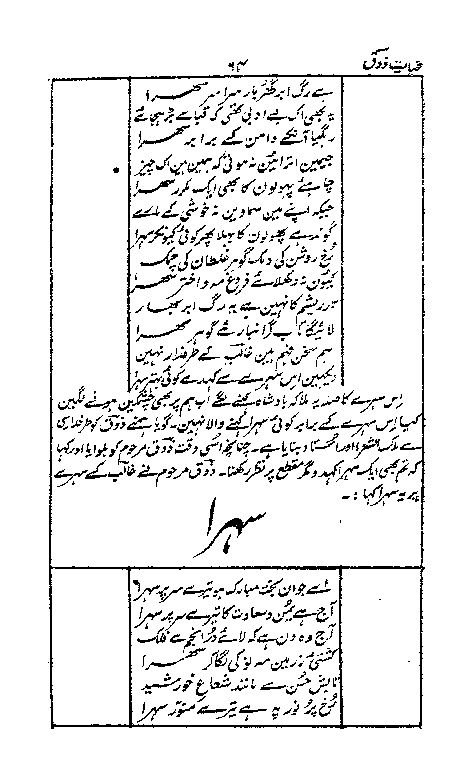 حیات ذوق
ہے رگ ابر گہر بار سراسر سہرا
یہ بھی اک بے ادبی تھی کہ قبا سے بڑھ جائے
رہ گیا آنکے دامن کے برابر سہرا
جیمین اترائین نہ موتی کہ ہمین ہین اک چیز
چاہئے پھولون کا بھی ایک مکرر سہرا
جبکہ اپنے مین سماوین نہ خوشی کے مارے
گوندہے پھولون کا بھلا پھر کوئی کیونکر سہرا
رخ روشن کی دمک گوہر غلطان کی چمک
کیون نہ دکھلائے فروغ مہ و اختر سہرا
تار ریشم کا نہین ہے یہ رگ ابر بہار
لائیگا تاب گرانباری گوہر سہرا
ہم سخن فہم ہین غالب کے طرفدار نہین
دیکھین اس سہرے سے کہدے کوئی بہتر سہرا
اس سہرے کا صلہ یہ ملا کہ بادشاہ کہنے لگے اب ہم پر بھی چشمکین ہونے لگین
کیا اس سہرے کے برابر کوئی سہرا کہنے والا نہین۔ گویا ہمنے ذوق کو طرفداری
سے ملک الشعرا اور استاد بنایا ہے۔ چنانچہ اسی وقت ذوق مرحوم کو بلوایا اور کہا
کہ تم بھی ایک سہرا کہدو مگر مقطع پر نظر رکھنا۔ ذوق مرحوم نے غالب کے سہرے
پر یہ سہرا کہا :۔
سہرا
اے جوان بخت مبارک ہو تیرے سر پر سہرا
آج ہے یمن و سعادت کا ترے سر پر سہرا
آج وہ دن ہے کہ لائے در انجم سے فلک
کشتئی زر مین مہ نو کی لگا کر سہرا
تابش حسن سے مانند شعاع خورشید
رخ پر نور پہ ہے تیرے منور سہرا